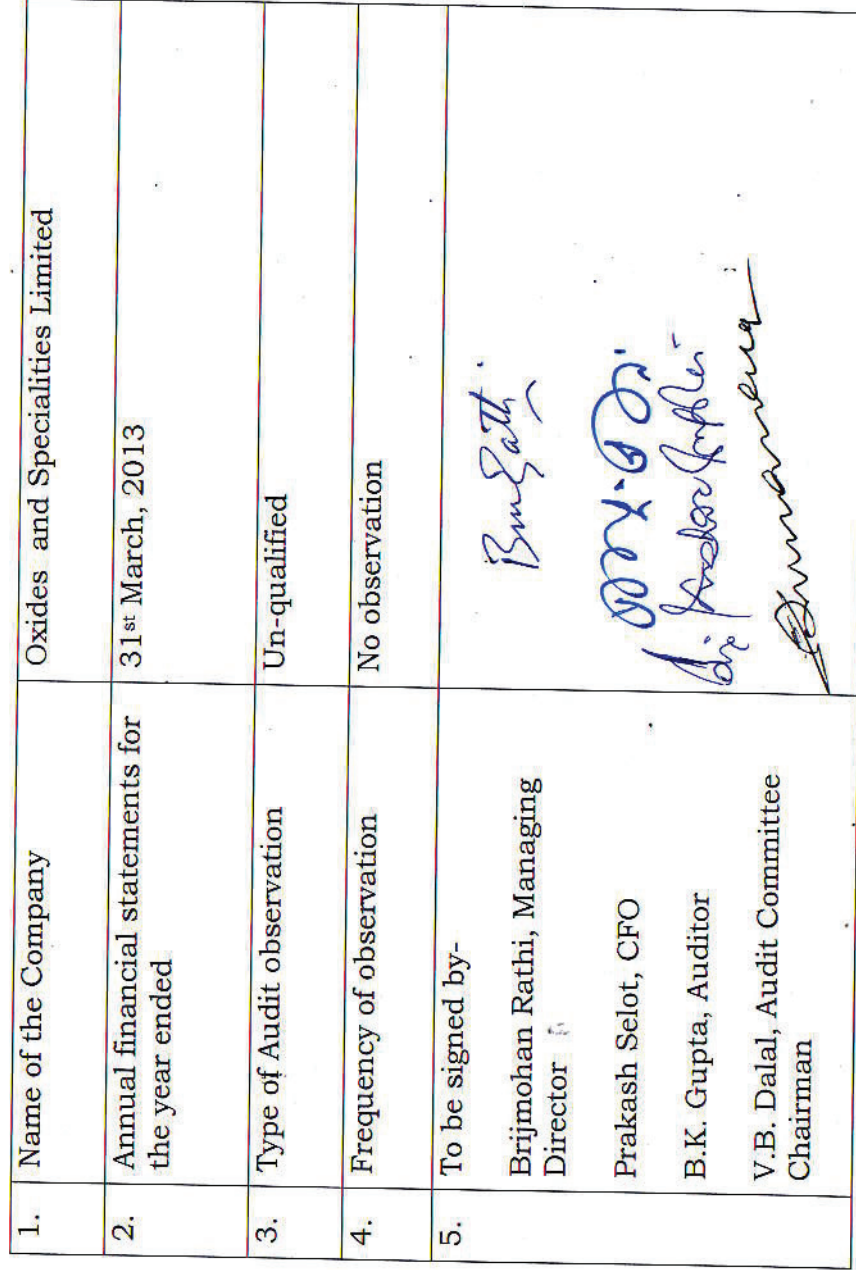 1. Name of the Company Oxides and Specialities Limited
2. Annual financial statements for 31st March, 2013
the year ended
3. Type of Audit observation Un-qualified
4. Frequency of observation No observation
5. To be signed by-
Brijmohan Rathi, Managing
Director
Prakash Selot, CFO
B.K. Gupta, Auditor
V.B. Dalal, Audit Committee
Chairman